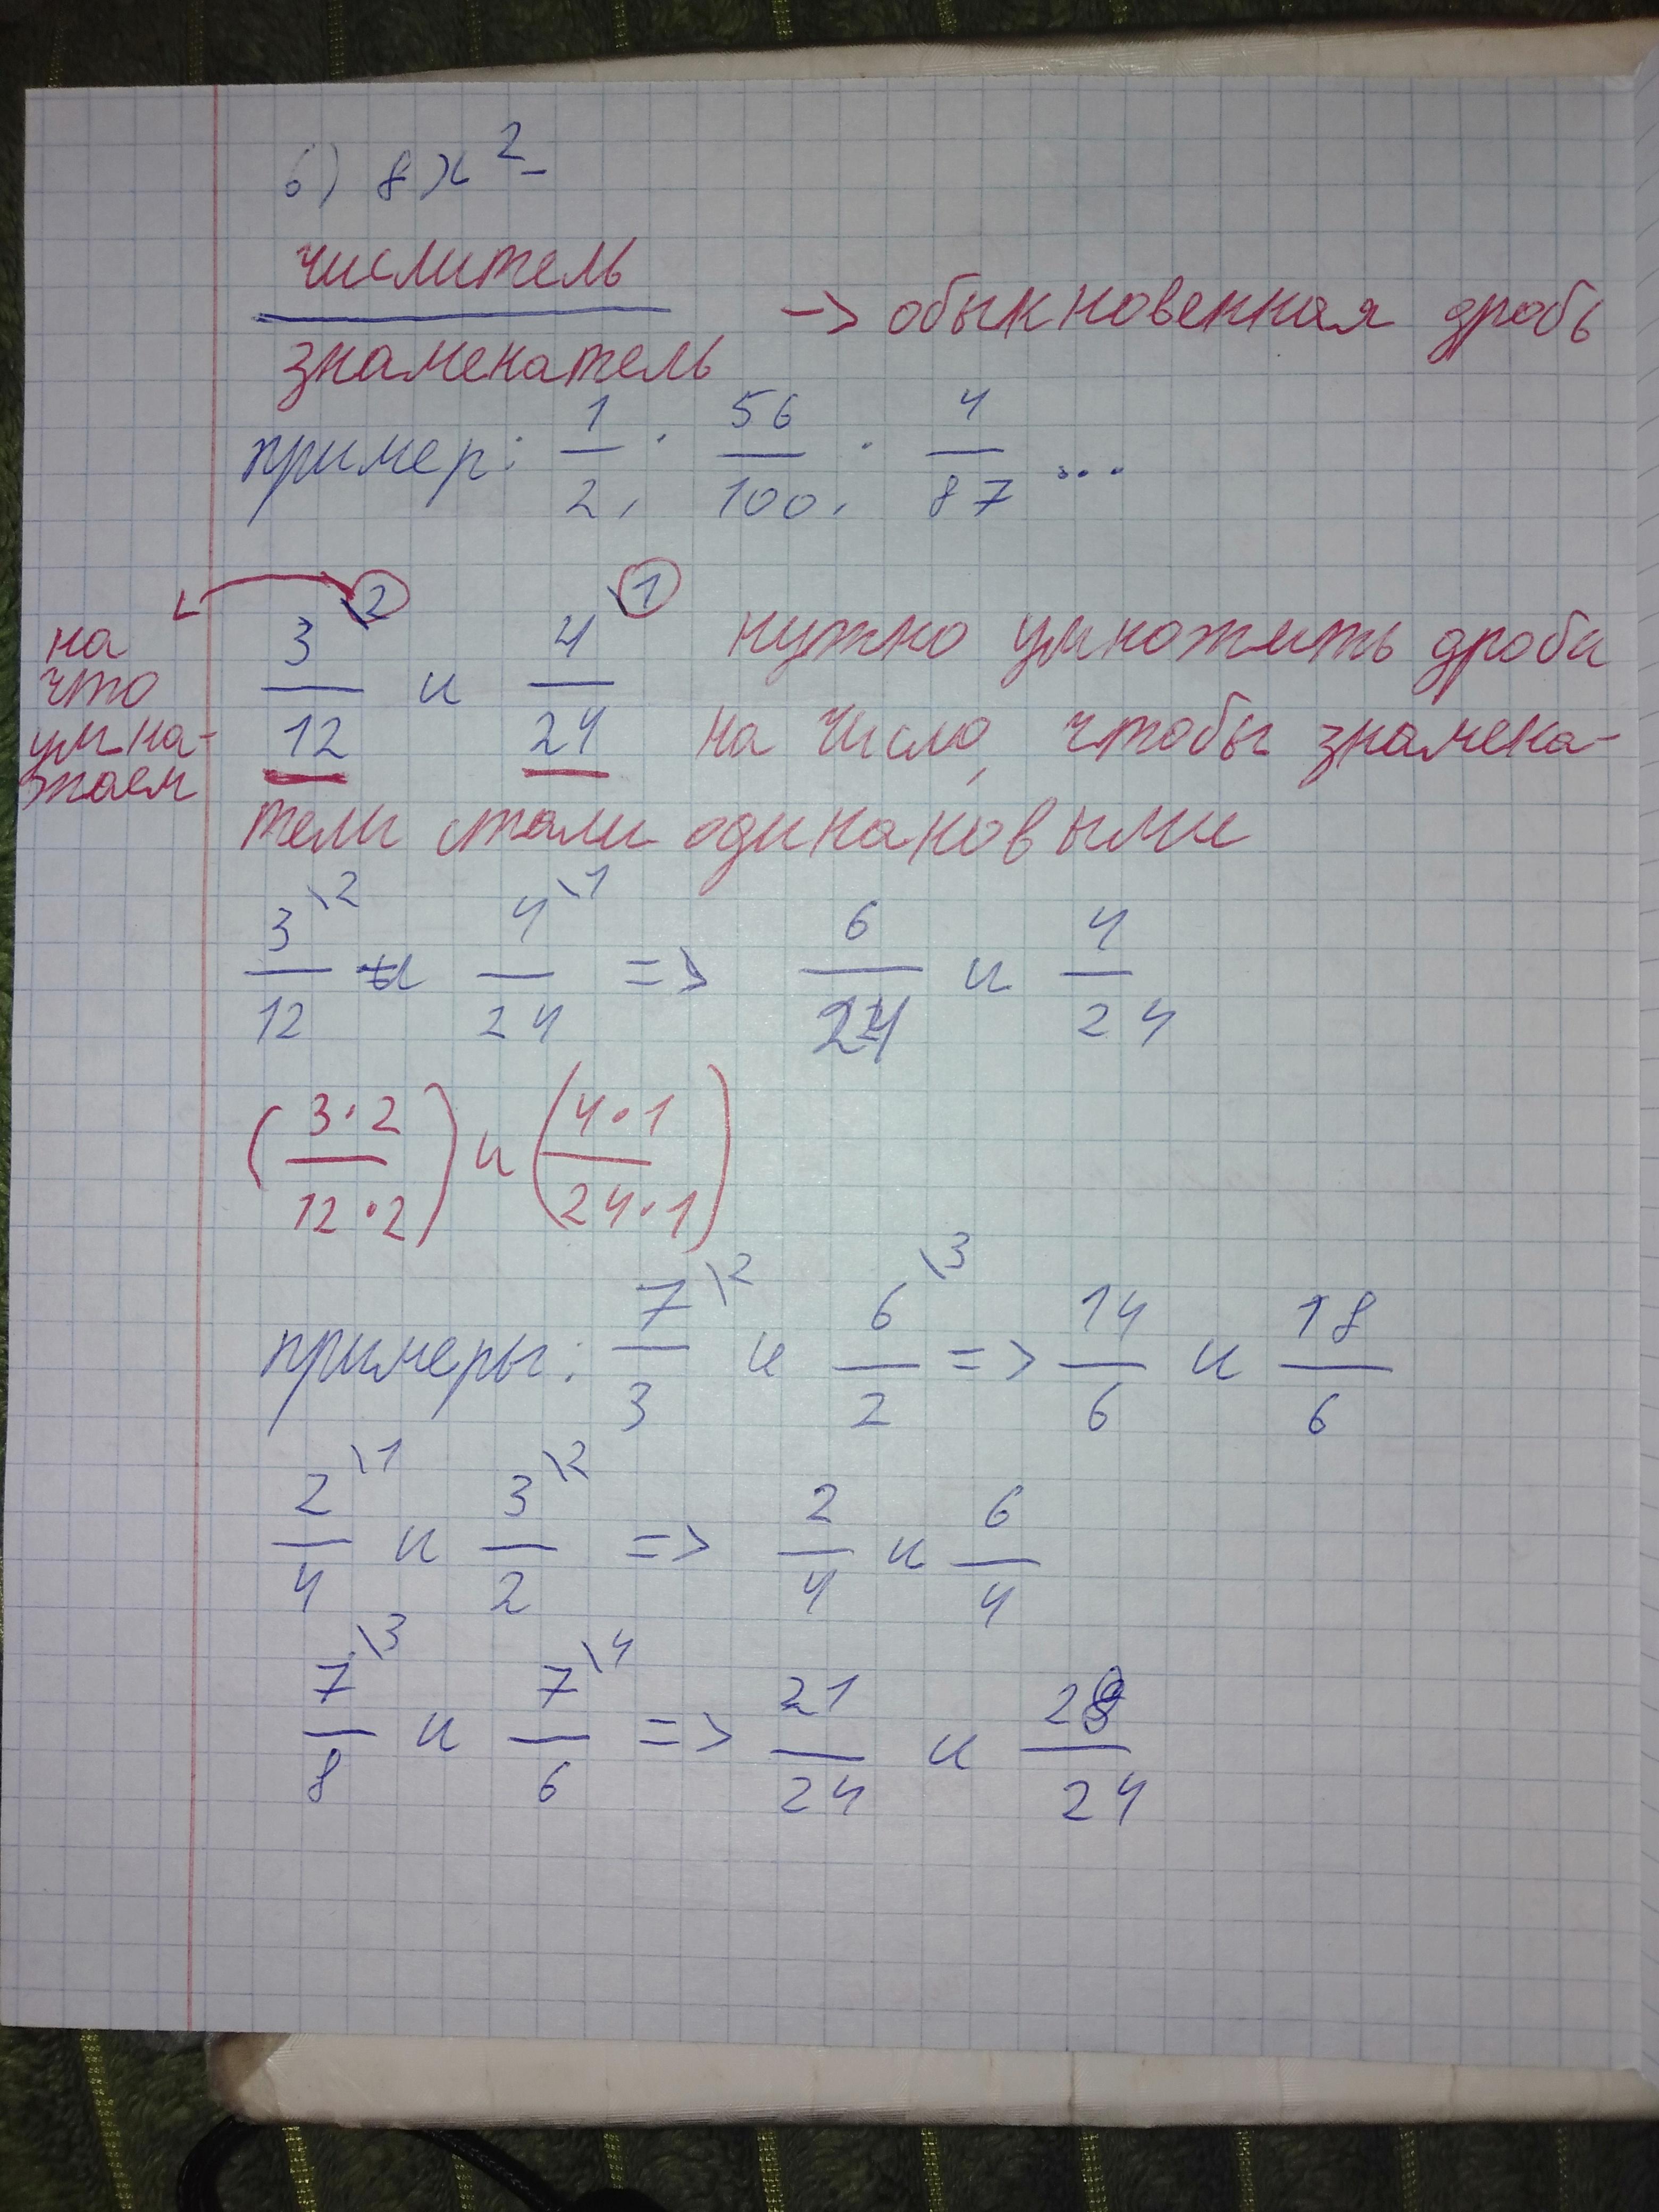 б) 8x²-
числитель
знаменатель -> обыкновенная дробь
пример: 1/2, 56/100, 4/87 ...
3/12 \2 и 4/24 \1 нужно умножить дроби
на что умна- жаем
на число, чтобы знамена-
тели стали одинаковыми
3/12 \2 и 4/24 \1 => 6/24 и 4/24
(3·2/12·2) и (4·1/24·1)
примеры: 7/3 \2 и 6/2 \3 => 14/6 и 18/6
2/4 \1 и 3/2 \2 => 2/4 и 6/4
7/8 \3 и 7/6 \4 => 21/24 и 28/24